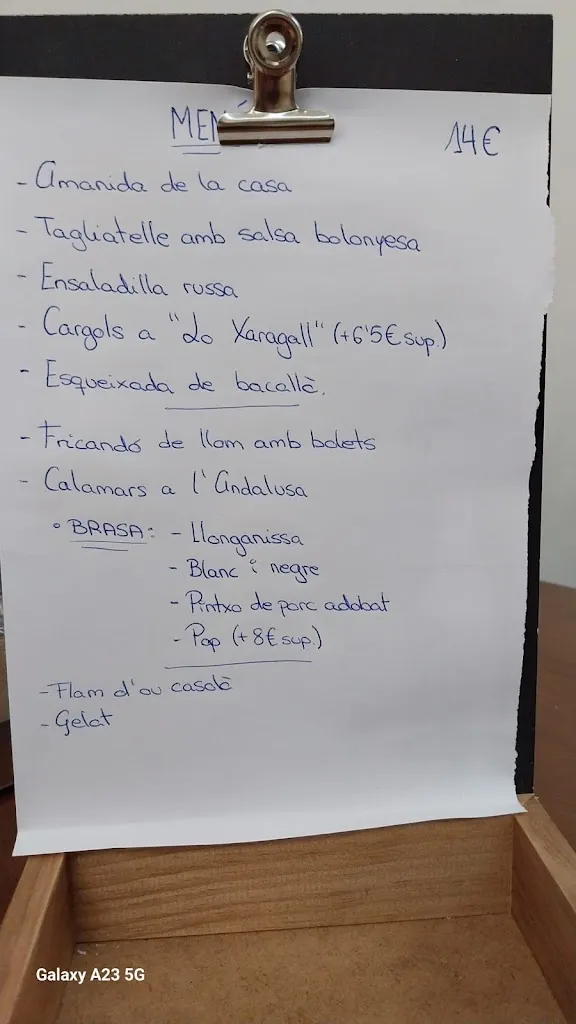 MENÚ
14€
- Amanida de la casa
- Tagliatelle amb salsa bolonyesa
- Ensaladilla russa
- Cargols a "Lo Xaragall" (+6'5€ sup.)
- Esqueixada de bacallà.
- Fricandó de llom amb bolets
- Calamars a l'Andalusa
° BRASA: - Llonganissa
- Blanc i negre
- Pintxo de porc adobat
- Pop (+8€ sup.)
- Flam d'ou casolà
- Gelat
Galaxy A23 5G